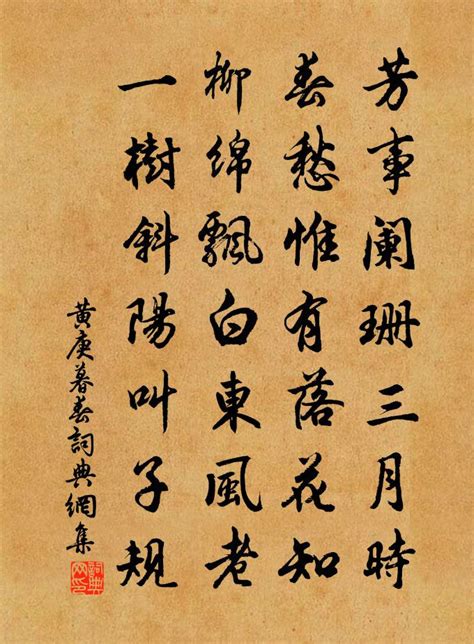 芳事阑珊三月時
春愁惟有落花知
柳绵飄白東風老
一樹斜陽叫子規
黄庚暮春詞典網集